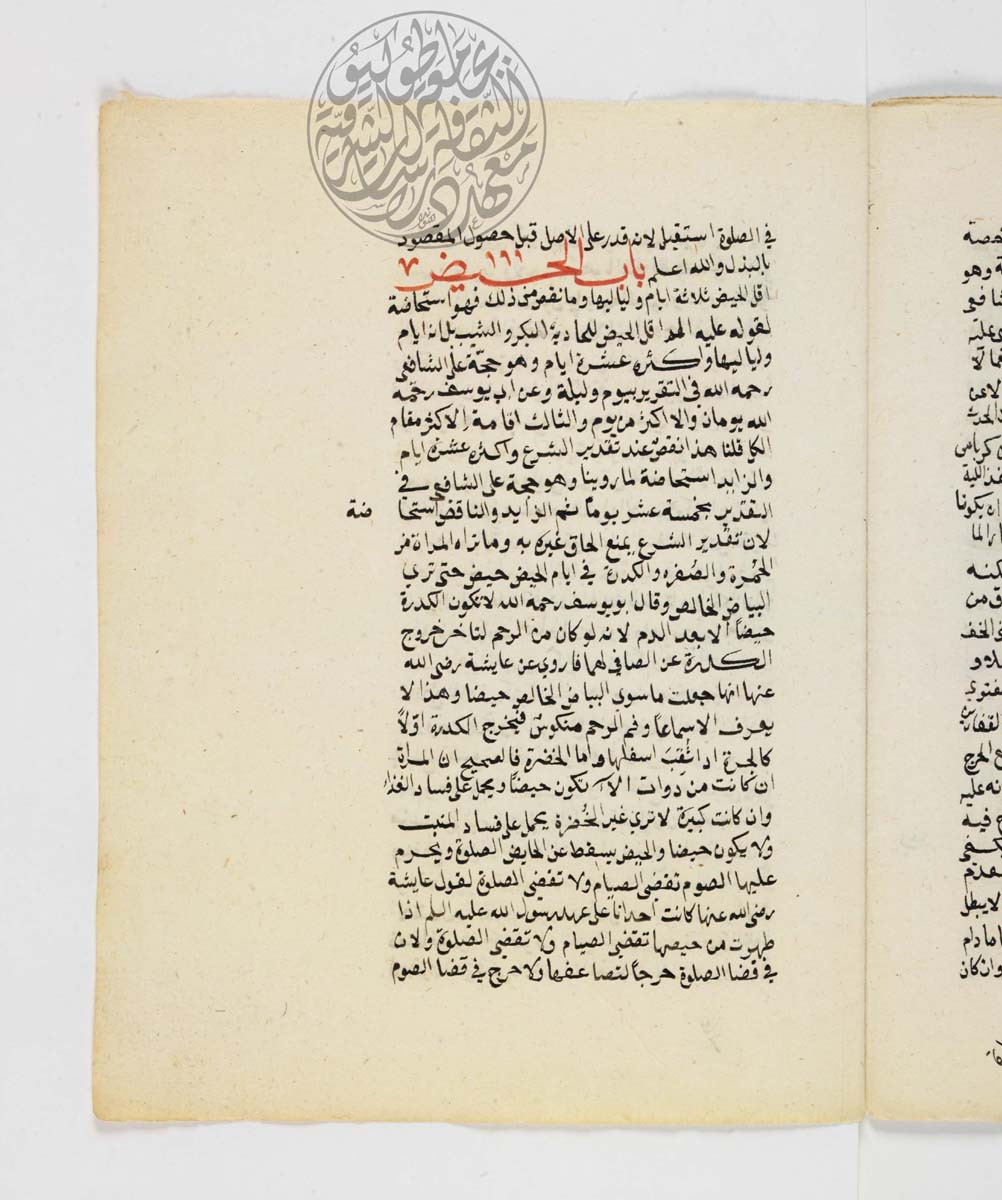 في الصلوة استقبل لانه قدر على الاصل قبل حصول المقصود
بالبدل والله اعلم باب الحيض
اقل الحيض ثلاثة ايام ولياليها وما نقص من ذلك فهو استحاضة
لقوله عليه اللم اقل الحيض للجارية البكر والثيب ثلاثة ايام
ولياليها واكثره عشرة ايام وهو حجة على الشافعي
رحمه الله في التقرير بيوم وليلة وعن ابي يوسف رحمه
الله يومان والا اكثر من يوم والثالث اقامة الاكثر مقام
الكل قلنا هذا نقص عند تقدير الشرع واكثره عشرة ايام
والزايد استحاضة لما روينا وهو حجة على الشافعي في
التقدير بخمسة عشر يوما ثم الزايد والناقص استحا ضة
لان تقدير الشرع يمنع الحاق غيره به وما تراه المراة من
الحمرة والصفره والكدرة في ايام الحيض حيض حتى تري
البياض الخالص وقال ابو يوسف رحمه الله لا تكون الكدرة
حيضا الا بعد الدم لانه لو كان من الرحم لتاخر خروج
الكدرة عن الصافي لهما فاروي عن عايشة رضى الله
عنها انها جعلت ما سوي البياض الخالص حيضا وهذا لا
يعرف الا سماعا وفم الرحم منكوس فيخرج الكدرة اولا
كالجرة اذا ثقب اسفلها واما الخضرة فالصحيح ان المراة
ان كانت من ذوات الا تكون حيضا ويحمل على فساد الغذاء
وان كانت كبيرة لا تري غير الخضرة يحمل على فساد المنبت
ولا يكون حيضا والحيض يسقط عن الحايض الصلوة ويحرم
عليها الصوم تقضى الصيام ولا تقضى الصلوة لقول عايشة
رضى الله عنها كانت احدانا على عهد رسول الله عليه اللم اذا
طهرت من حيضها تقضى الصيام ولا تقضى الصلوة ولان
في قضا الصلوة حرجا لتضاعفها ولا حرج في قضا الصوم